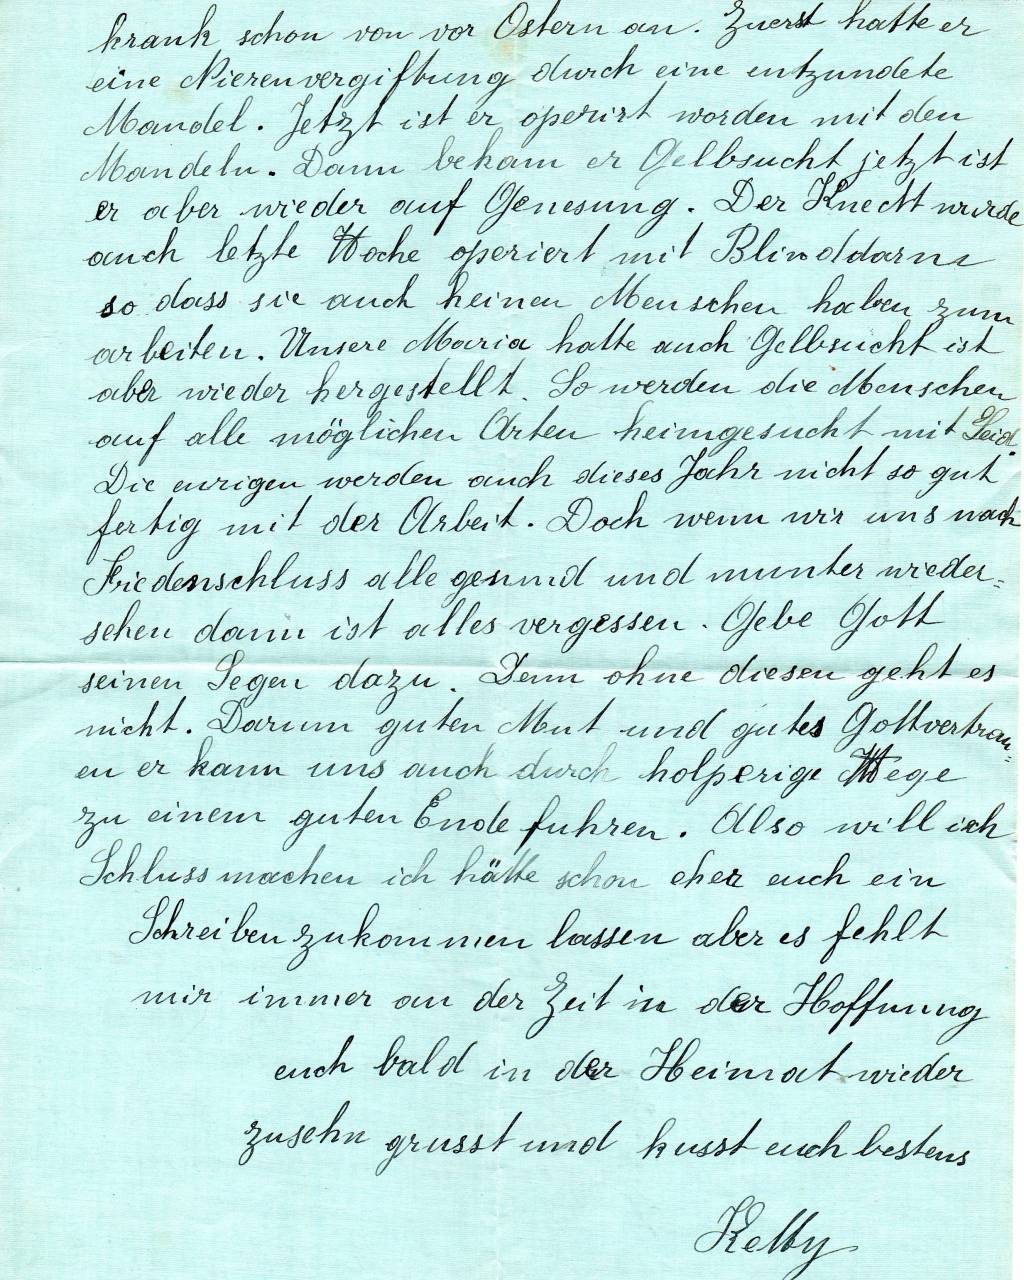 krank schon von vor Ostern an. Zuerst hatte er
eine Nierenvergiftung durch eine entzundete
Mandel. Jetzt ist er operirt worden mit den
Mandeln. Dann bekam er Gelbsucht jetzt ist
er aber wieder auf Genesung. Der Knecht wurde
auch letzte Woche operiert mit Blinddarm
so dass sie auch keinen Menschen haben zum
arbeiten. Unsere Maria hatte auch Gelbsucht ist
aber wieder hergestellt. So werden die Menschen
auf alle möglichen Arten heimgesucht mit Leid.
Die eurigen werden auch dieses Jahr nicht so gut
fertig mit der Arbeit. Doch wenn wir uns nach
Friedenschluss alle gesund und munter wieder=
sehen dann ist alles vergessen. Gebe Gott
seinen Segen dazu. Denn ohne diesen geht es
nicht. Darum guten Mut und gutes Gottvertrau=
en er kann uns auch durch holperige Wege
zu einem guten Ende fuhren. Also will ich
Schluss machen ich hätte schon eher euch ein
Schreiben zukommen lassen aber es fehlt
mir immer an der Zeit in der Hoffnung
euch bald in der Heimat wieder
zusehn grusst und kusst euch bestens